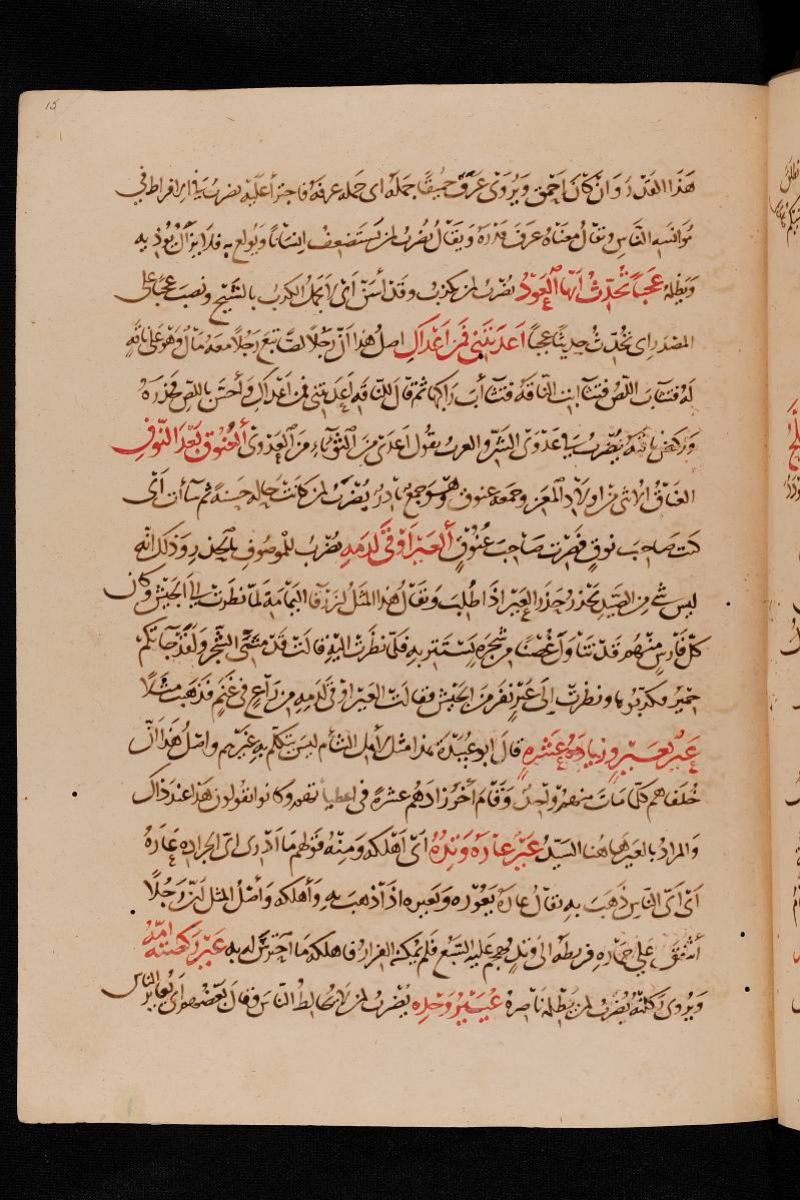 15
هَذَا القَدْر وَانْ كَانَ احْمَق وَيُرْوَى عَرَفَ حُمَيْقًا جَمَلُهُ اى جَمله عرفهُ فاجترأ عَلَيْه يضربُ فى الافراط فى
مؤانسَة النَاسِ ويُقالُ معنَاهُ عَرَفَ قَدْرَهُ وَيقَالُ يُضْرَبُ لمن يَسْتَضعِفُ انسَانًا وَيُولع بِهِ فلا يزال يُؤذيه
وَيظلِمُهُ عَجَبًا تُحَدِّثُ أيّها العَوْدُ يضرَبُ لمن يكذِب وقَدْ أسَنّ اى لا يجمل الكذِبُ بالشَيْخِ ونصبَ عجَبًا على
المصْدَر اى تُحَدِّثُ حديثًا عجَبًا اَعْدَيْتَنِى فَمَنْ اَعْدَاكِ اصلُ هَذا اَنّ رَجُلًا لصًّا تبعَ رَجُلًا معَهُ مَالٌ وَهْوَ عَلى نَاقةٍ
لهُ فتثاءبَ اللّصُ فتثاءبت النّاقَةُ فتثاءَبَ رَاكبُها ثم قالَ للناقهِ اَعْدَيْتِنى فمن اَعْدَاكِ وَأحَسّ باللصِ فحَذِرَهُ
وَركضَ نَاقتَهُ يُضْرَبُ فى عَدْوَى الشَرّ والعرب يقول اَعْدَى مِنَ الثُّؤَبَاءِ مِنَ العَدْوَى أَلعُنُوق بَعْدَ النُّوقِ
العَنَاقُ الانثى مِن اولادِ المَعز وجمعه عنوق وهُو جمع نادِرٌ يُضْرَبُ لمن كانَتْ حَاله حَسَنة ثم سَاءت اَى
كنت صَاحِبَ نوقٍ فَصِرْت صَاحِبَ عُنُوْقٍ أَلعَيْرُ اَوْقَى لِدَمِهِ يُضْرَبُ للمَوصُوفِ بالحَذرِ وَذلك انّه
ليسَ شَئ مِن الصَيدِ يَحذر حَذَرَ العَيْر اذا طُلِبَ وَيقَالُ هَذا المَثَلُ لزَرْقَا اليَمَامَة لَمّا نظَرت الى الجَيْش وَكانَ
كلّ فَارسٍ مِنْهم قَدْ تنَاوَل غُصْنًا مِن شجَرةٍ يَسْتَتر بهِ فلَمّا نَظَرَتْ اليْهِ قَالَتْ قَدْ مَشَى الشَجَرُ وَلَقَدْ جَآءَتكم
حِمْيَرُ فكذبُوها ونظرَتْ اِلى عَيْرٍ نفَرَ مِنَ الجَيْش فقَالَت العَيْرُ اوْقى لدَمِهِ مِن رَاعٍ فى غَنَمِهِ فذهَبَت مثَلًا
عَيْرٌ بعَيْرٍ وزِيادَةُ عَشرَةٍ قالَ ابو عُبَيْدَة هذا مَثلٌ لأهل الشَّام ليسَ يَتكلّم بِهِ غَيْرهُم واصْلُ هَذَا اَنّ
خُلَفَاءَهم كلّما مَاتَ مِنهمْ وَاحِدٌ وَقَامَ آخَر زَادَهُمْ عشرةً فى اعطياتهم وكانوا يقولون هَذا عند ذاكَ
وَالمرادُ بالعَيْرِ هَاهُنا السَيّدُ عَيْرٌ عَارَهُ وَتِدُهُ اَىْ اَهْلكهُ وَمِنْهُ قَوْلهم مَا أدْرِى اىُّ الجَرادِ عَارَهُ
اَىْ اىُّ النّاسِ ذَهَبَ بِهِ يقَالُ عارَهُ يَعُوْرُه وَيَعِيرهُ اذا ذَهبَ بِهِ وَأهلكَهُ وَأصْلُ المثَلِ انّ رَجُلًا
أشفَقَ عَلى حِمَارِهِ فربطَهُ الى وَتِدٍ فهجم عَليهِ السَّبُع فلَم يمكنهُ الفِرَارُ فاهلكَه مَا احتَرَسَ له بهِ عَيْرٌ رَكَضَتْهُ امُّهُ
وَيُروى رَكَلَتْهُ يُضْرَبُ لمن يَظْلِمُهُ نَاصِرُهُ عُيَيْرُ وَحْدِهِ يُضْرَبُ لمن لا يُخالِطُ النّاسَ وقالَ بَعْضُهُم اَى يُعَايِرُ النّاسَ